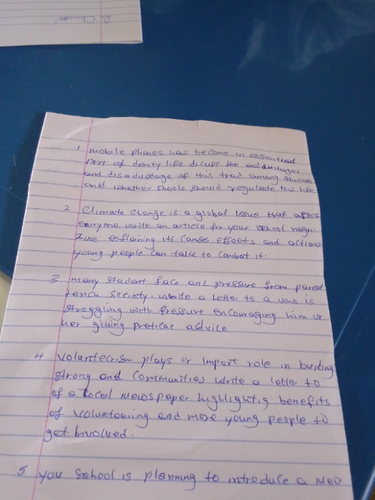 1 mobile phones has become in essentead
Part of daity life dicuss the advantages
and disadvatage of this trad among students
and whether shools should regulate this use
2 Climate change is a global issue that affects
everyone write an article for your school maga
zine explaning its cause effects and actions
young people can take to combat it.
3 many student face and pressure from parent
society. write a letter to a who is
stroggling with pressure encouraging him or
her giving pratical advice
4 Volunteerism plays or import role in building
strong and Communities write a letter to
of a Local newspaper highlighting benefits
of Voluntooring and more young people to
get Involved.
5 you School is planning to introduce a new